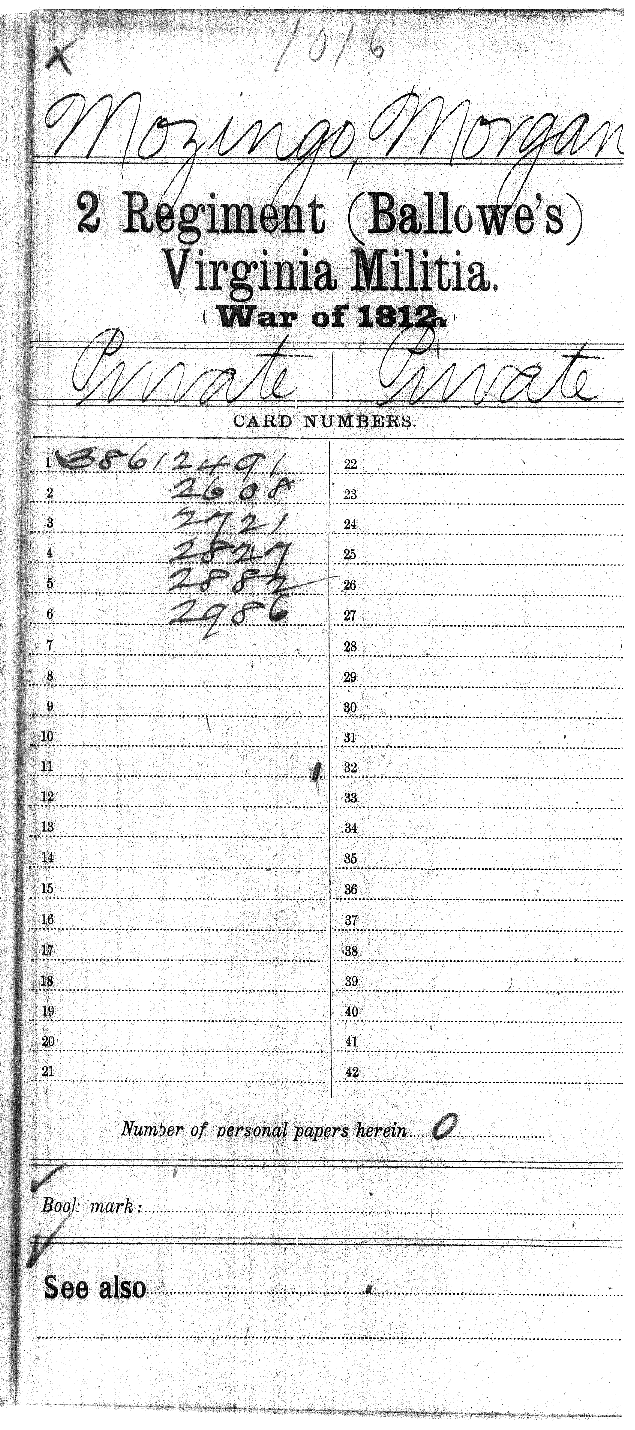 x
1016
Mozingo, Morgan
2 Regiment (Ballowe's)
Virginia Militia.
(War of 1812.)
Private | Private
CARD NUMBERS.
1 38612491 22
2 2608 23
3 2721 24
4 2827 25
5 2882 26
6 2986 27
7 28
8 29
9 30
10 31
11 32
12 33
13 34
14 35
15 36
16 37
17 38
18 39
19 40
20 41
21 42
Number of personal papers herein 0
Book mark:
See also